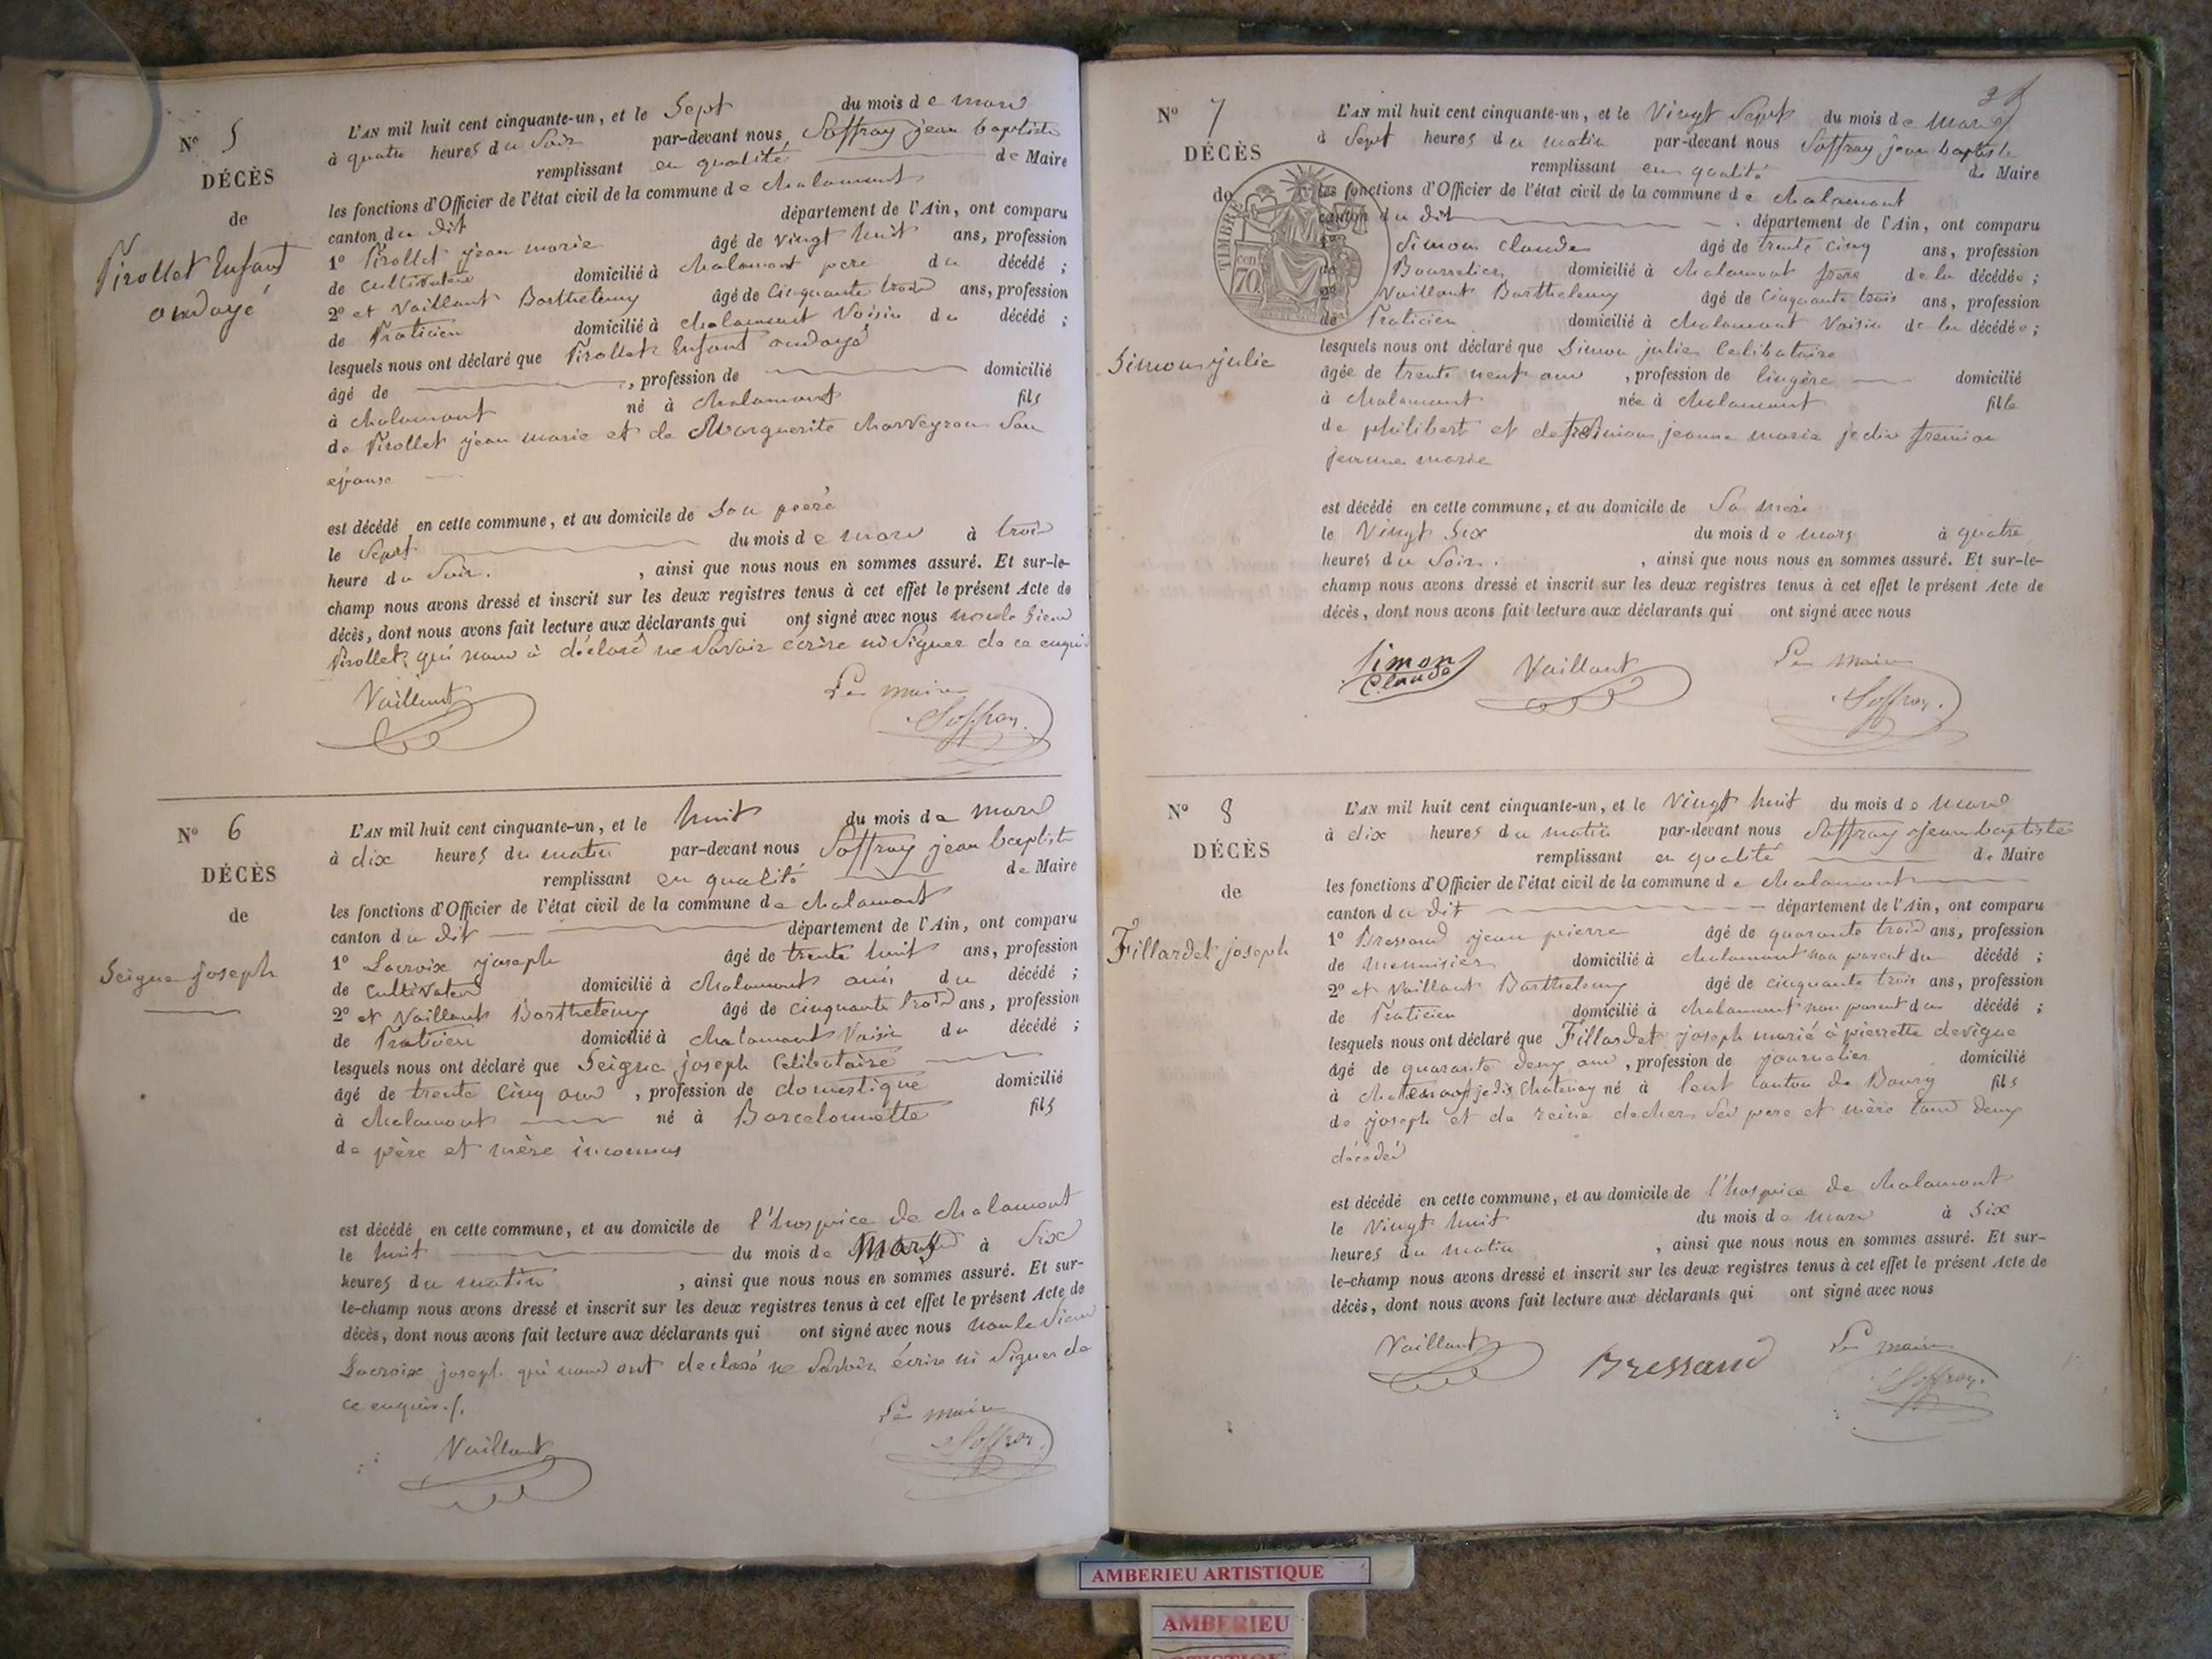 N° 5
DÉCÈS
de
Pirollet Enfant
ondoyé
L'AN mil huit cent cinquante-un, et le Sept du mois de mars
à quatre heures du Soir par-devant nous Soffray jean baptiste
remplissant en qualité de Maire
les fonctions d'Officier de l'état civil de la commune de chalamont
canton du dit département de l'Ain, ont comparu
1° Pirollet jean marie âgé de vingt huit ans, profession
de Cultivateur domicilié à chalamont pere du décédé ;
2° et Vaillant Barthelemy âgé de Cinquante trois ans, profession
de Praticien domicilié à chalamont Voisin du décédé ;
lesquels nous ont déclaré que Pirollet Enfant ondoyé
âgé de , profession de domicilié
à chalamont né à chalamont fils
de Pirollet jean marie et de Marguerite charveyron Son
épouse
est décédé en cette commune, et au domicile de Son peère
le Sept du mois de mars à trois
heure du Soir. , ainsi que nous nous en sommes assuré. Et sur-le-
champ nous avons dressé et inscrit sur les deux registres tenus à cet effet le présent Acte de
décès, dont nous avons fait lecture aux déclarants qui ont signé avec nous non le Sieur
Pirollet, qui nous à déclaré ne Savoir écrire ni Signer de ce enquis
Vaillant Le maire
Soffray
N° 6
DÉCÈS
de
Seigne joseph
L'AN mil huit cent cinquante-un, et le huit du mois de mars
à dix heures du matin par-devant nous Soffray jean baptiste
remplissant en qualité de Maire
les fonctions d'Officier de l'état civil de la commune de chalamont
canton du dit département de l'Ain, ont comparu
1° Lacroix joseph âgé de trente huit ans, profession
de Cultivateur domicilié à chalamont ami du décédé ;
2° et Vaillant Barthelemy âgé de cinquante trois ans, profession
de Praticien domicilié à chalamont Voisin du décédé ;
lesquels nous ont déclaré que Seigne joseph Celibataire
âgé de trente Cinq ans , profession de domestique domicilié
à chalamont né à Barcelonnette fils
de père et mère inconnus
est décédé en cette commune, et au domicile de l'hospice de chalamont
le huit du mois de Mars à Six
heures du matin , ainsi que nous nous en sommes assuré. Et sur-
le-champ nous avons dressé et inscrit sur les deux registres tenus à cet effet le présent Acte de
décès, dont nous avons fait lecture aux déclarants qui ont signé avec nous non le Sieur
Lacroix joseph qui nous ont declaré ne Savoir écrire ni Signer de
ce enquis./.
Vaillant Le maire
Soffray
N° 7
DÉCÈS
de
Simon julie
TIMBRE
70 cen
L'AN mil huit cent cinquante-un, et le Vingt Sept du mois de Mars
à Sept heures du matin par-devant nous Soffray jean baptiste
remplissant en qualité de Maire
les fonctions d'Officier de l'état civil de la commune de chalamont
canton du dit département de l'Ain, ont comparu
1° Simon Claude âgé de trente cinq ans, profession
de Bourrelier domicilié à chalamont frere de la décédée ;
2° Vaillant Barthelemy âgé de Cinquante trois ans, profession
de Praticien domicilié à chalamont Voisin de la décédée ;
lesquels nous ont déclaré que Simon julie Celibataire
âgée de trente neuf ans , profession de lingère domicilié
à chalamont née à chalamont fille
de philibert et de jeanne marie je dis fremion
jeanne marie
est décédé en cette commune, et au domicile de Sa mère
le Vingt Six du mois de mars à quatre
heures du Soir. , ainsi que nous nous en sommes assuré. Et sur-le-
champ nous avons dressé et inscrit sur les deux registres tenus à cet effet le présent Acte de
décès, dont nous avons fait lecture aux déclarants qui ont signé avec nous
Simon Claude Vaillant Le maire
Soffray
N° 8
DÉCÈS
de
Fillardet joseph
L'AN mil huit cent cinquante-un, et le Vingt huit du mois de mars
à dix heures du matin par-devant nous Soffray jean baptiste
remplissant en qualité de Maire
les fonctions d'Officier de l'état civil de la commune de chalamont
canton du dit département de l'Ain, ont comparu
1° Bressand jean pierre âgé de quarante trois ans, profession
de menuisier domicilié à chalamont non parent du décédé ;
2° et Vaillant Barthelemy âgé de cinquante trois ans, profession
de Praticien domicilié à chalamont non parent du décédé ;
lesquels nous ont déclaré que Fillardet joseph marié à pierrette devigue
âgé de quarante deux ans , profession de journalier domicilié
à chalamont je dis Chatenay né à lent Canton de Bourg fils
de joseph et de reine dechers Ses pere et mère tous deux
décédés
est décédé en cette commune, et au domicile de l'hospice de chalamont
le Vingt huit du mois de mars à Six
heures du matin , ainsi que nous nous en sommes assuré. Et sur-
le-champ nous avons dressé et inscrit sur les deux registres tenus à cet effet le présent Acte de
décès, dont nous avons fait lecture aux déclarants qui ont signé avec nous
Vaillant Bressand Le maire
Soffray
AMBERIEU ARTISTIQUE
AMBERIEU
ARTISTIQUE